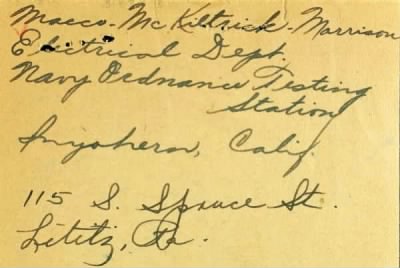 Macco-McKittrick-Morrison
Electrical Dept.
Navy Ordnance Testing
Station
Inyokern, Calif.
115 S. Spruce St.
Lititz, Pa.